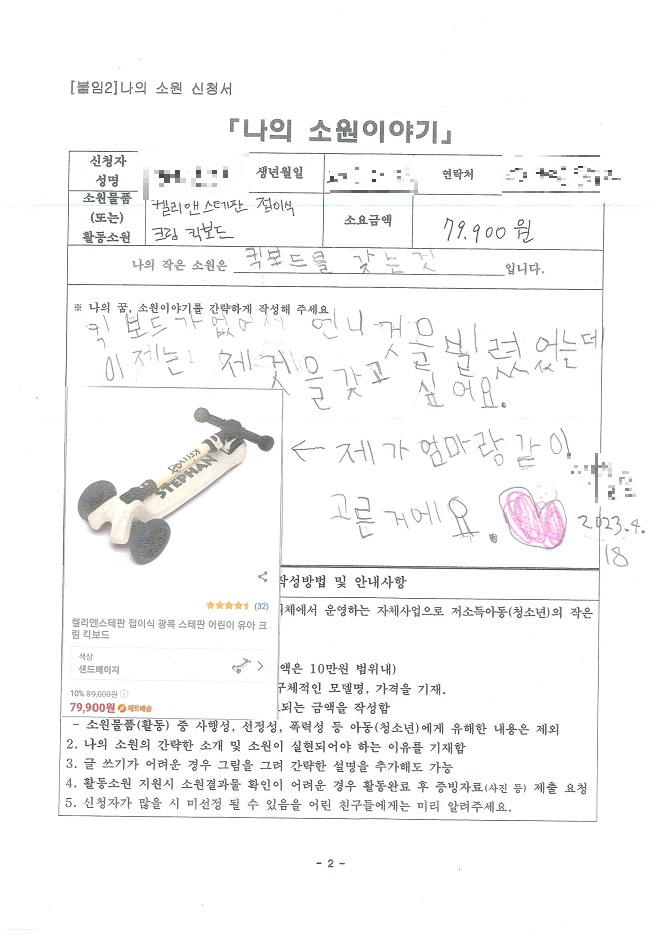 [붙임2]나의 소원 신청서
「나의 소원이야기」
신청자 성명
생년월일
연락처
소원물품 (또는) 활동소원
켈리앤스테판 접이식
크림 킥보드
소요금액
79,900원
나의 작은 소원은 킥보드를 갖는것 입니다.
※ 나의 꿈, 소원이야기를 간략하게 작성해 주세요
킥보드가 없어서 언니것을 빌렸었는데
이제는 제것을 갖고
싶어요.
← 제가 엄마랑 같이
고른거에요.
2023.4.
18
KELLY&
STEPHAN
(32)
켈리앤스테판 접이식 광폭 스테판 어린이 유아 크
림 킥보드
색상
샌드베이지
10% 89,000원
79,900원 제트배송
작성방법 및 안내사항
체에서 운영하는 자체사업으로 저소득아동(청소년)의 작은
액은 10만원 범위내)
구체적인 모델명, 가격을 기재.
되는 금액을 작성함
- 소원물품(활동) 중 사행성, 선정성, 폭력성 등 아동(청소년)에게 유해한 내용은 제외
2. 나의 소원의 간략한 소개 및 소원이 실현되어야 하는 이유를 기재함
3. 글 쓰기가 어려운 경우 그림을 그려 간략한 설명을 추가해도 가능
4. 활동소원 지원시 소원결과물 확인이 어려운 경우 활동완료 후 증빙자료(사진 등) 제출 요청
5. 신청자가 많을 시 미선정 될 수 있음을 어린 친구들에게는 미리 알려주세요.
- 2 -